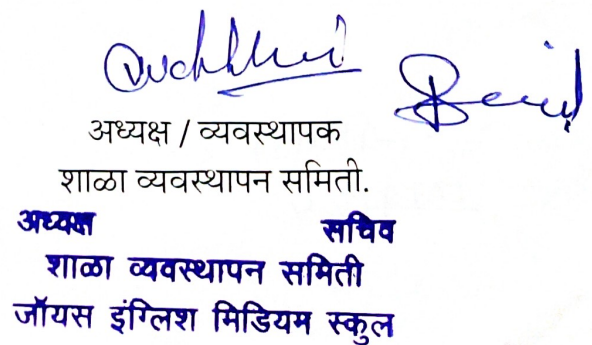 अध्यक्ष / व्यवस्थापक
शाळा व्यवस्थापन समिती.
अध्यक्ष सचिव
शाळा व्यवस्थापन समिती
जॉयस इंग्लिश मिडियम स्कुल